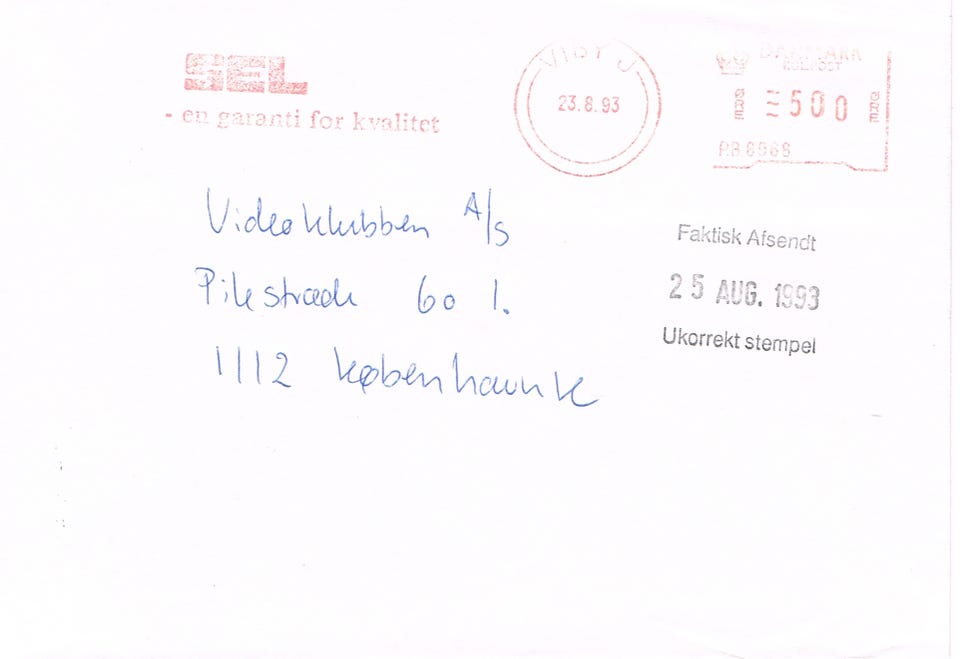 SEL
- en garanti for kvalitet
VIBY J
23.8.93
DANMARK
ØRE = 500 ØRE
PB 8968
Videoklubben A/S
Pilestræde 60 1.
1112 København K
Faktisk Afsendt
25 AUG. 1993
Ukorrekt stempel